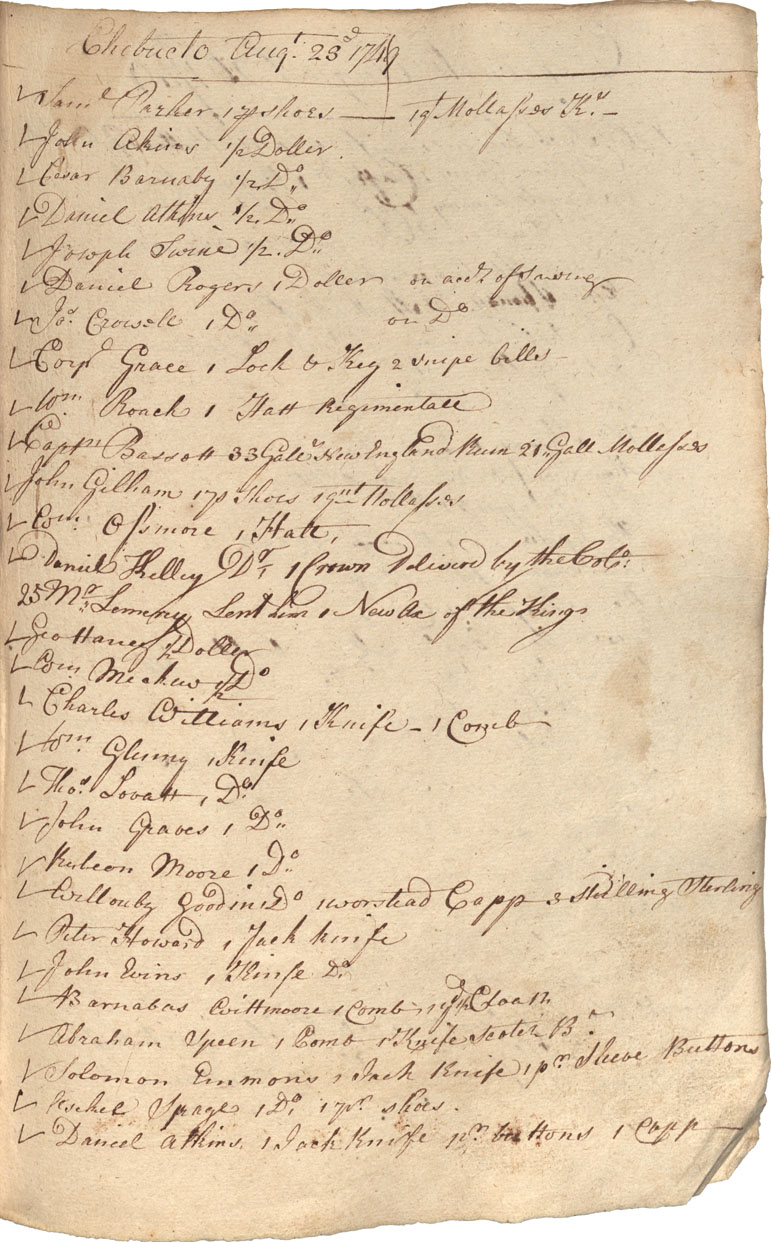 Chebucto Augt. 23d 1749
Saml. Parker 1 pr shoes — 1 qt Mollasses K:s —
John Akins 1/2 Doller.
Cesar Barnaby 1/2 Do.
Daniel Atkins 1/2 Do.
Joseph Swine 1/2 Do.
Daniel Rogers 1 Doller on acct. of Sawing
Jos. Crowell 1 Do. on Do
Corpl Grace 1 Lock & Key 2 snipe bills
Wm. Roach 1 Hatt Regimentall
Captn Bassott 33 Galls New England Rum 21 Gall Mollasses
John Gilham 1 pr Shoes 1 qut Mollasses
Wm. Ossmore 1 Hatt,
Daniel Kelley Dr. 1 Crown Delivered by the Colo.
25 Mr. Lemeny Lent him 1 New Ax of the Kings
Geo Haney 1/2 Doller
Wm Meckew 1/2 Do
Charles Williams 1 Knife — 1 Comb
Wm. Glenny 1 Knife
Thos. Lovatt 1 Do.
John Graves 1 Do.
Rubeon Moore 1 Do.
Willouby Goodin 1 Do 1 worstead Capp 3 shilling Sterling
Peter Howard 1 Jack knife
John Evins 1 Knife Do.
Barnabas Wittmoore 1 Comb 1 yd Cloath
Abraham Speen 1 Comb 1 Knife Scotch B.
Solomon Emmons 1 Jack Knife 1 pr. Sleeve Buttons
Speage 1 Do. 1 pr. shoes.
Daniel Atkins 1 Jack Knife pr. buttons 1 Capp —